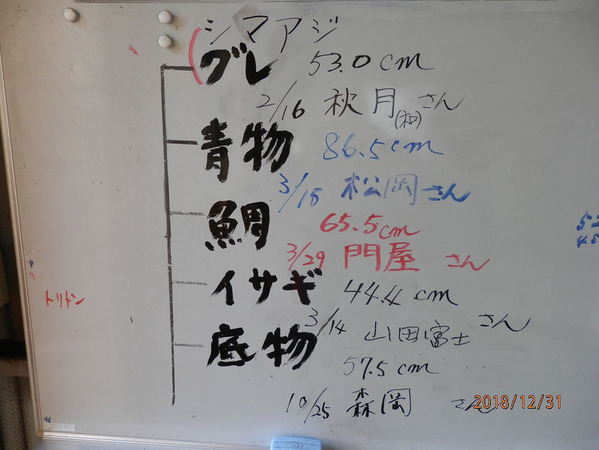 シマアジ
グレ 53.0cm
2/16 秋月(和)さん
青物 86.5cm
3/15 松岡さん
鯛 65.5cm
3/29 門屋さん
イサギ 44.4cm
3/14 山田富士さん
底物 57.5cm
10/25 森岡さん
トリトン
2018/12/31